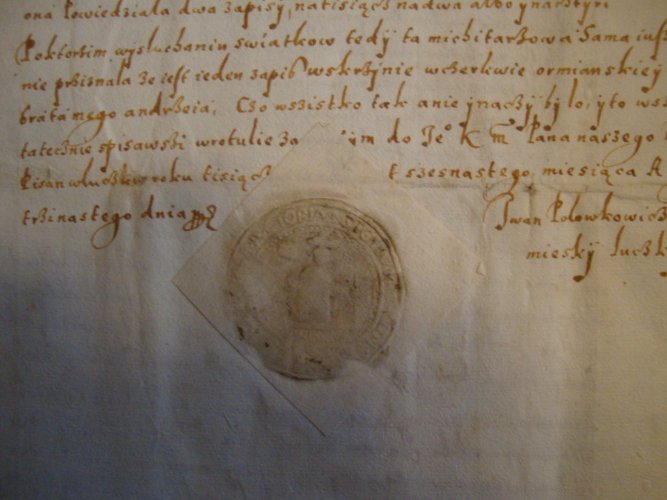 ona Powiedziała dwa zapisy, na tisiącz na dwa albo ynaczyi
Poktorim wysłuchaniu swiatkow tedy ta michitarzowa Sama iusz
nie prziznała że iest ieden zapis wskrzynie wczerkwie ormianskiey
brata mego andrzeia, Czo wszistko tak a nie ynaczy było, yto wsz
tatecznie spisawski wrotulie za ym do Je⁰ K m Pana naszego
Pisan włuczku roku tisiącz t szesnastego, miesiąca A
trzinastego dnia
Iwan Połowkowicz
mieski łuczk